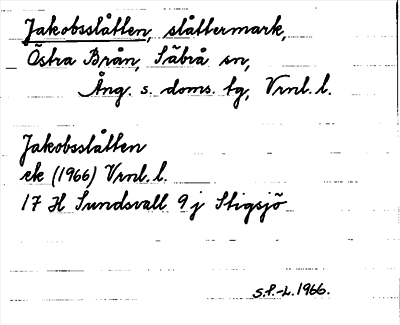 Jakobsslåtten, slåttermark,
Östra Brån, Säbrå sn,
Ång. s. doms. tg, Vrnl. l.
Jakobsslåtten
ek (1966) Vrnl. l.
17 H Sundsvall 9 j Stigsjö
S.P.-L. 1966.